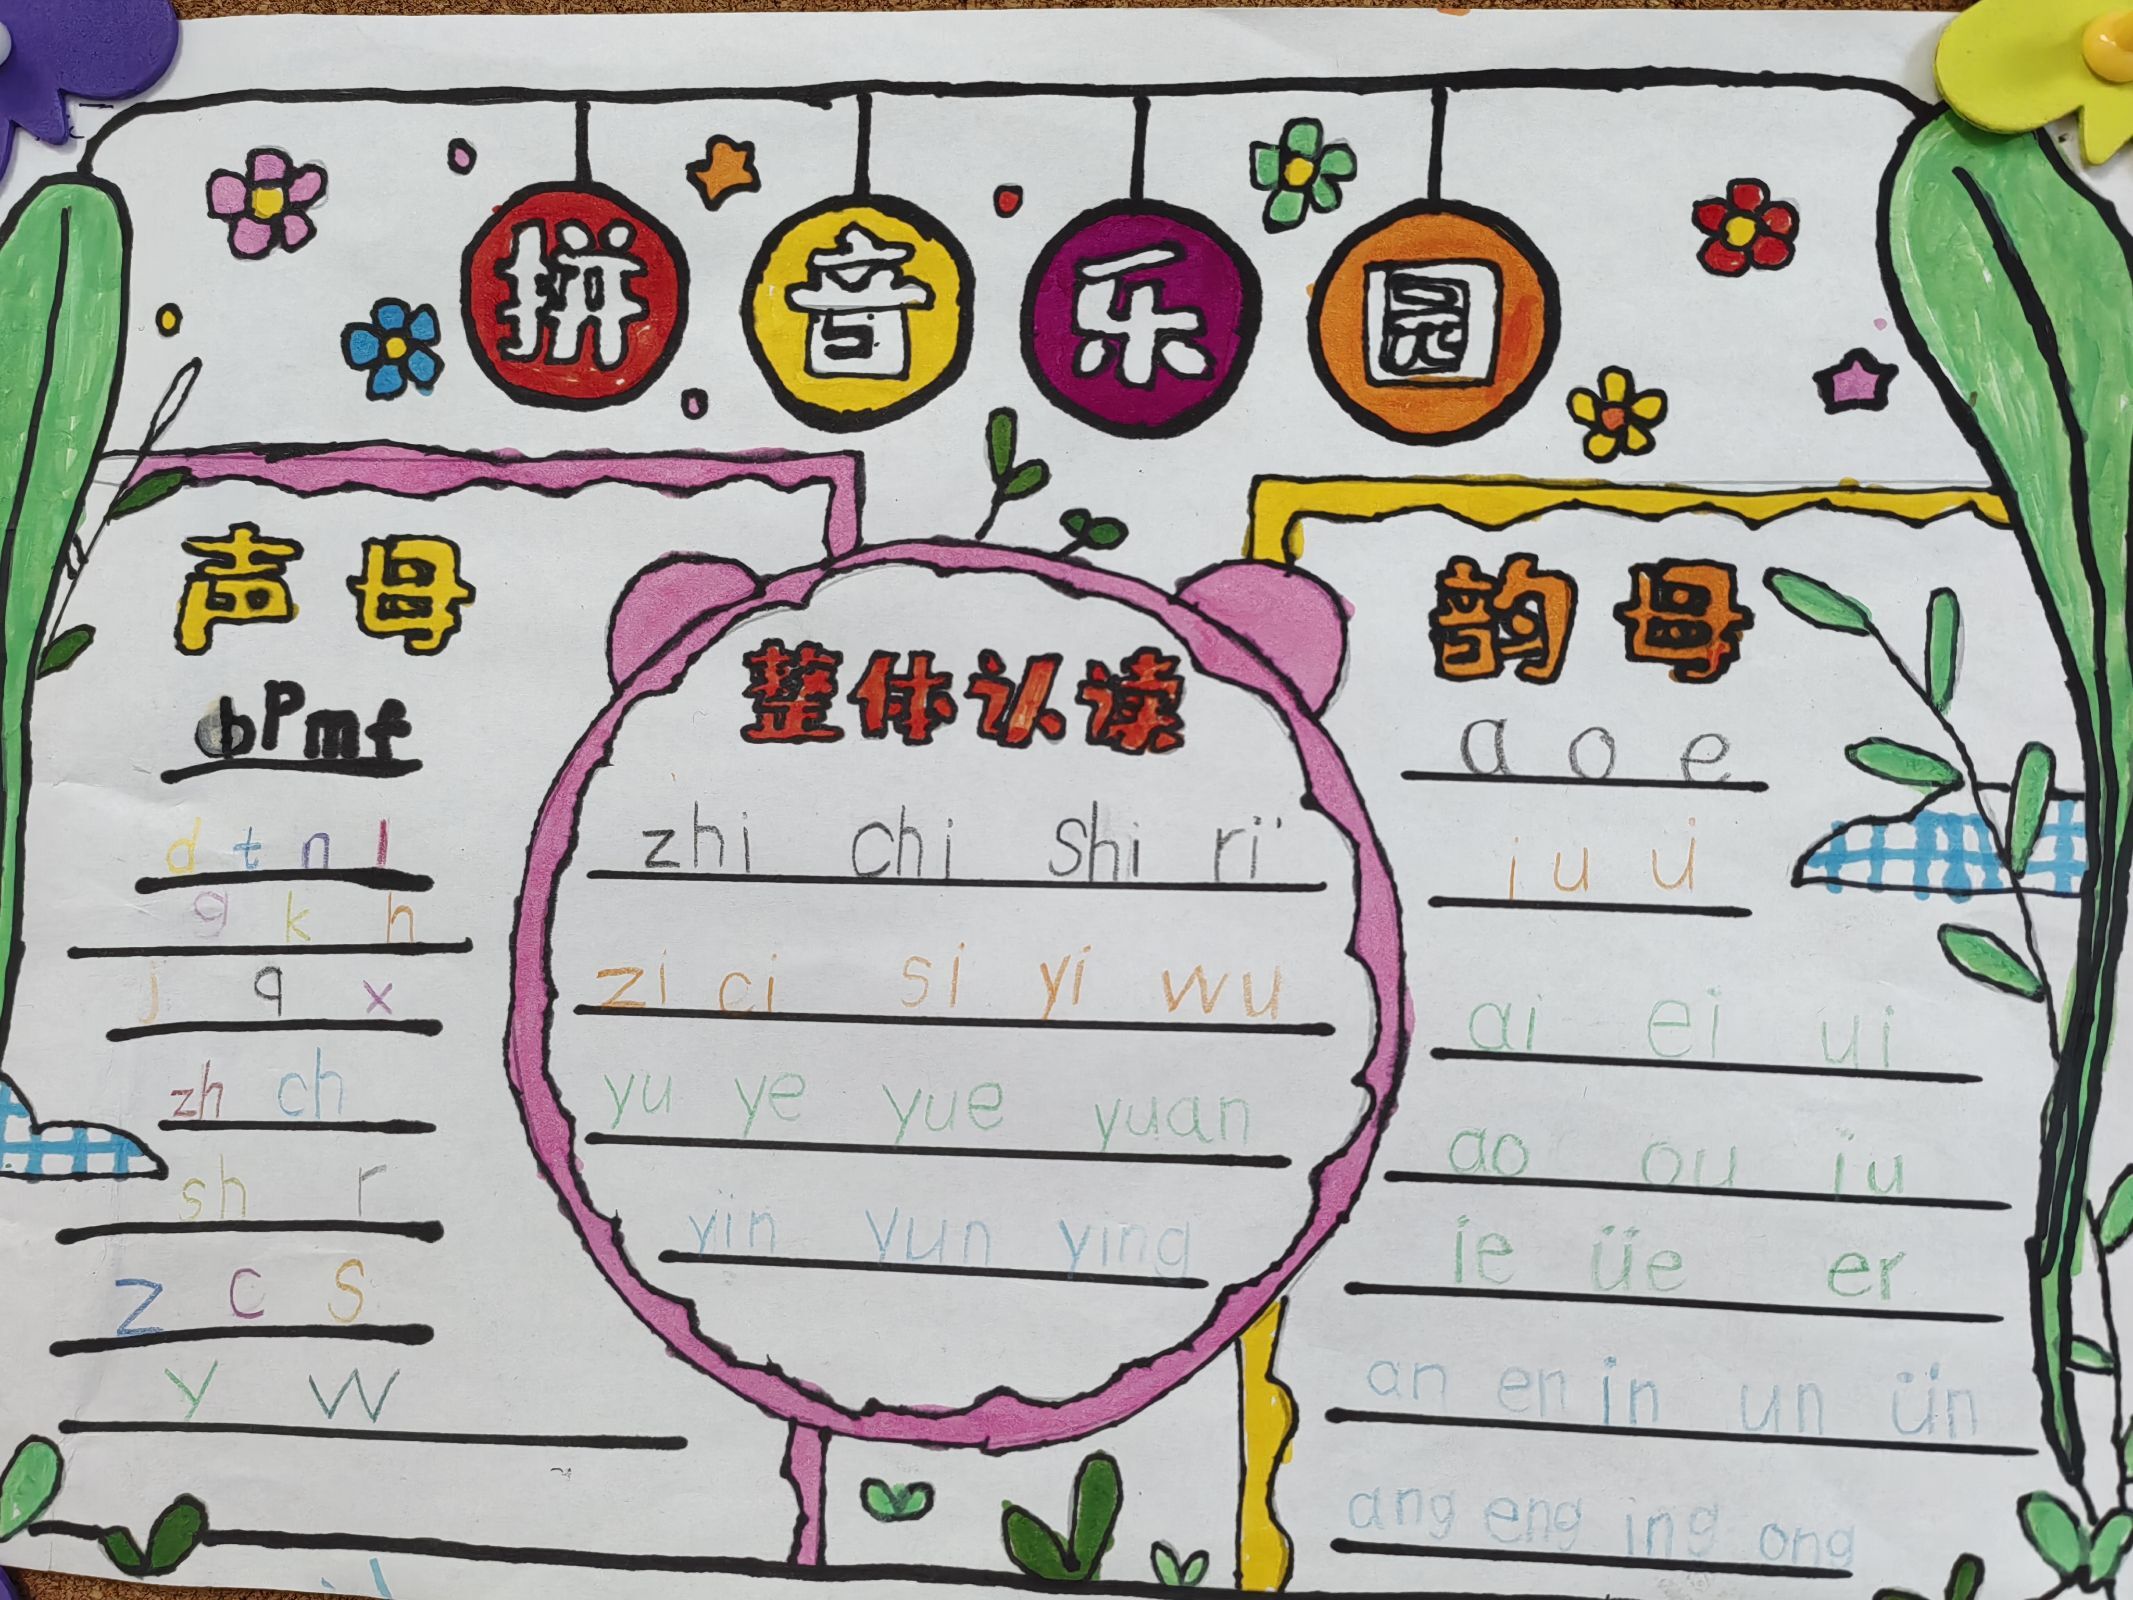 拼音乐园
声母
bPmf
d t n l
g k h
j q x
zh ch
sh r
z c s
y w
整体认读
zhi chi shi ri
zi ci si yi wu
yu ye yue yuan
yin yun ying
韵母
a o e
i u ü
ai ei ui
ao ou iu
ie üe er
an en in un ün
ang eng ing ong